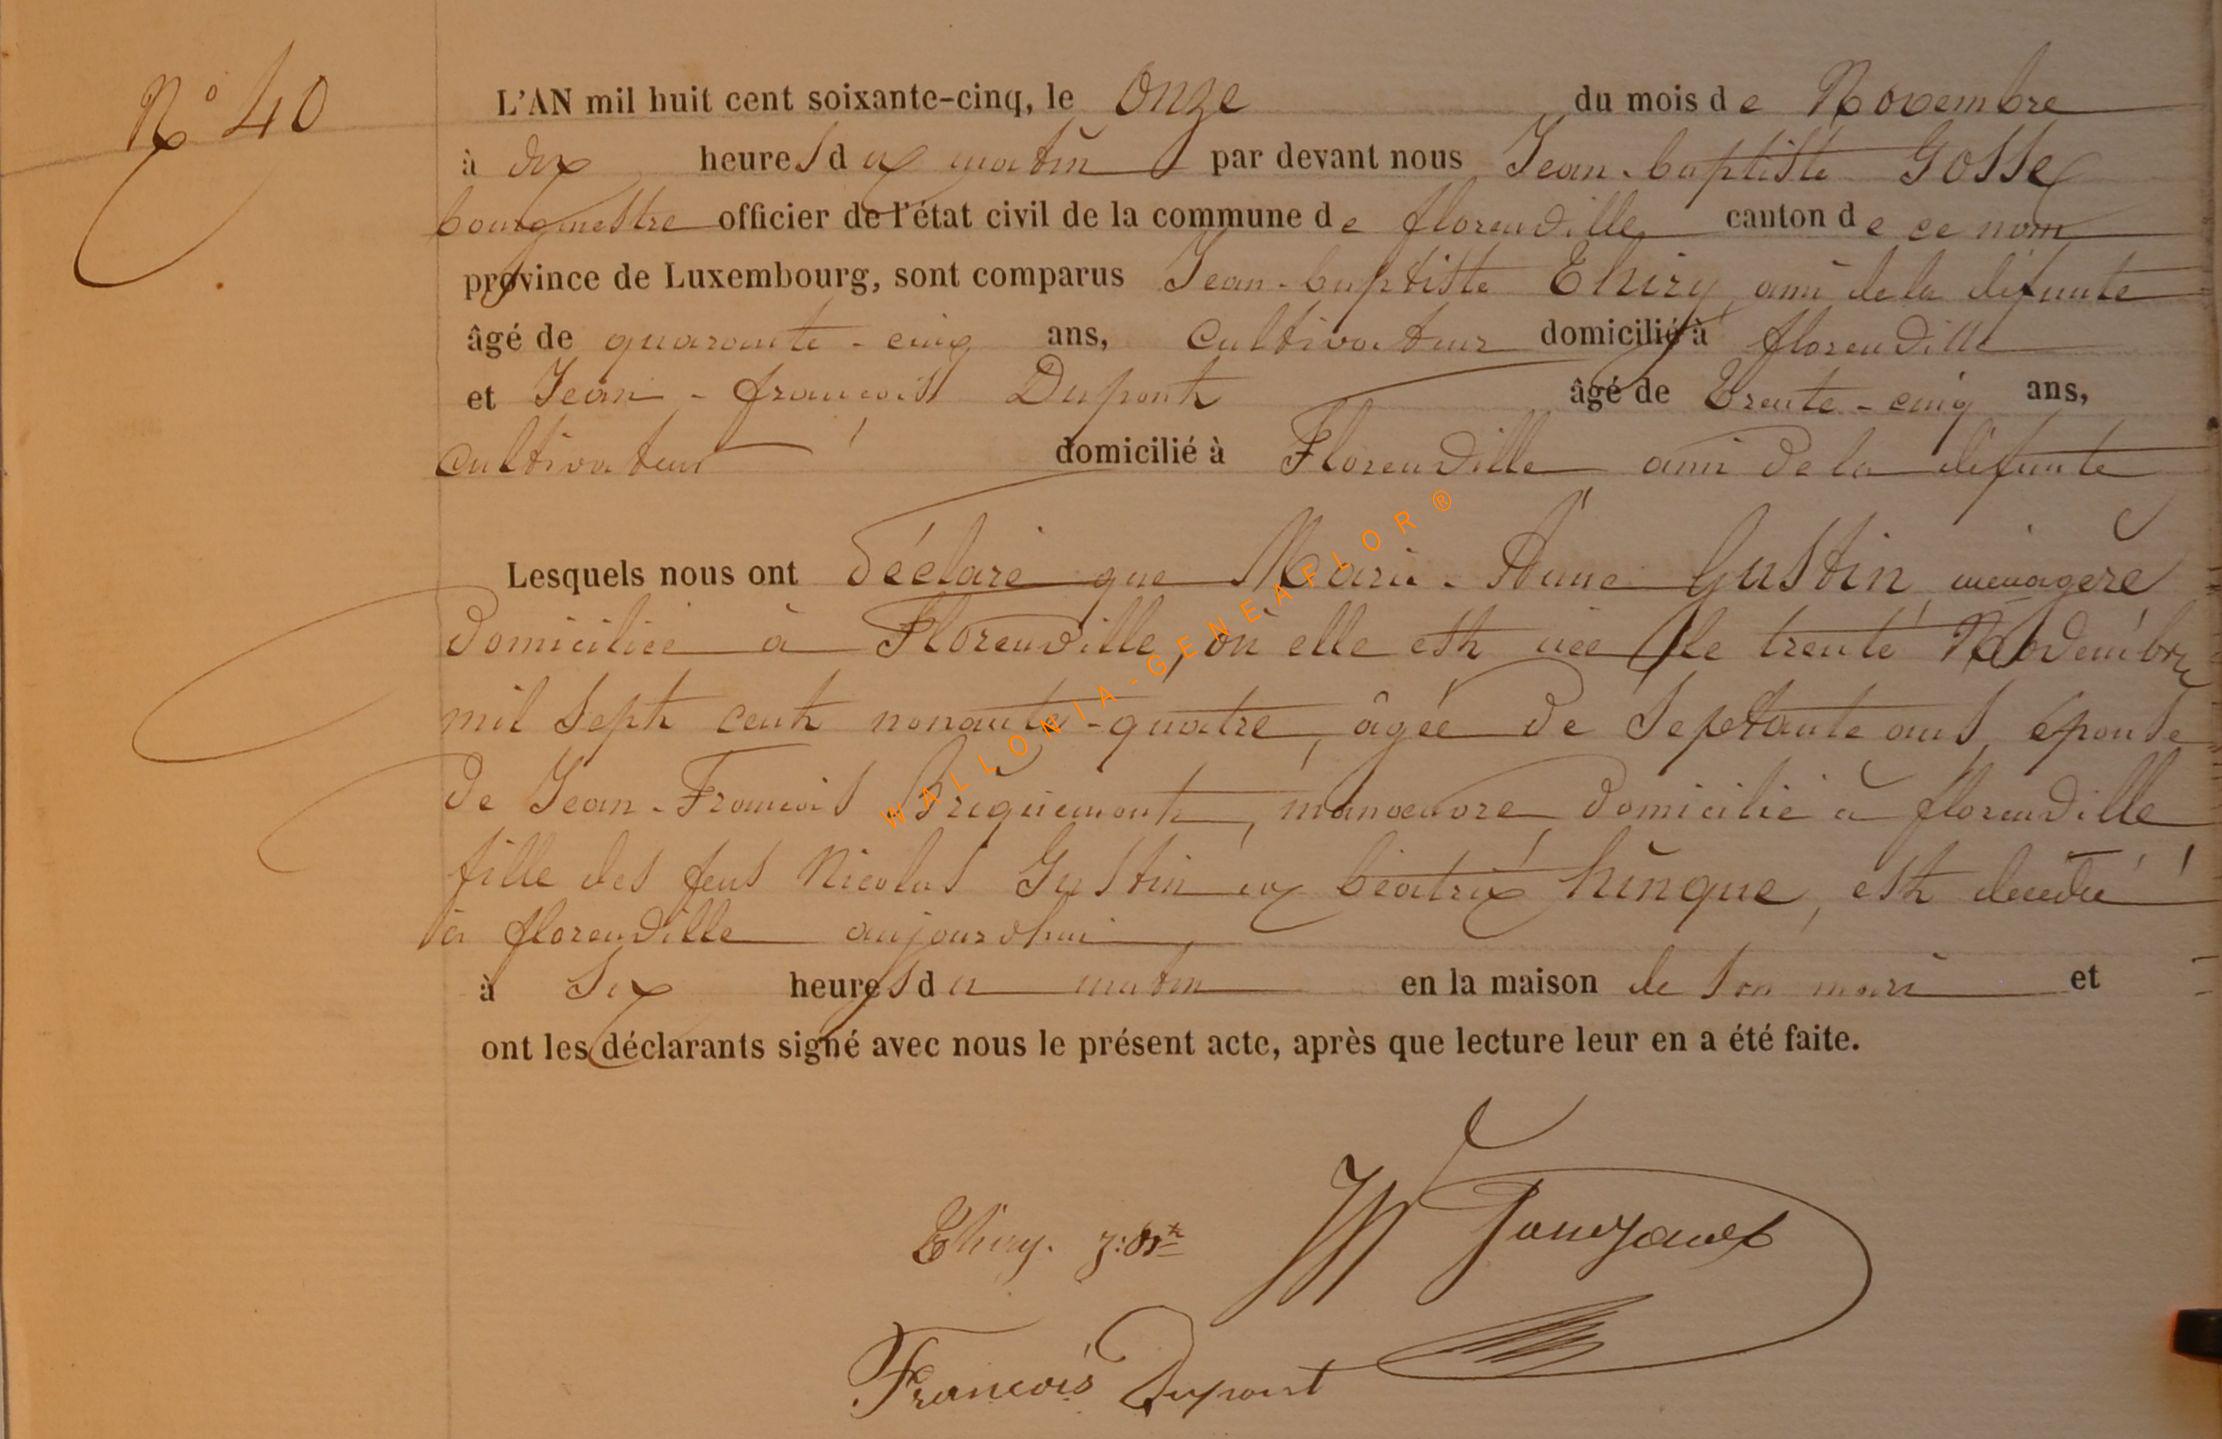 N° 40
L'AN mil huit cent soixante-cinq, le onze du mois de Novembre
à dix heures du matin par devant nous Jean-baptiste Gosse
bourgmestre officier de l'état civil de la commune de florenville canton de ce nom
province de Luxembourg, sont comparus Jean-baptiste Thiry ami de la défunte
âgé de quarante-cinq ans, cultivateur domicilié à florenville
et Jean-françois Dupont âgé de trente-cinq ans,
cultivateur domicilié à Florenville ami de la défunte
Lesquels nous ont déclaré que Marie-Anne Gustin, ménagère
domiciliée à Florenville, où elle est née le trente Novembre
mil sept cent nonante-quatre, âgée de septante ans, épouse
de Jean-François Briquemont, manoeuvre domicilié à florenville
fille des feus Nicolas Gustin et béatrix hinque, est décédée
à florenville aujourdhui
à six heures du matin en la maison de son mari et
ont les déclarants signé avec nous le présent acte, après que lecture leur en a été faite.
Thiry. J:Bte
François Dupont
WALLONIA-GENEAFLOR®